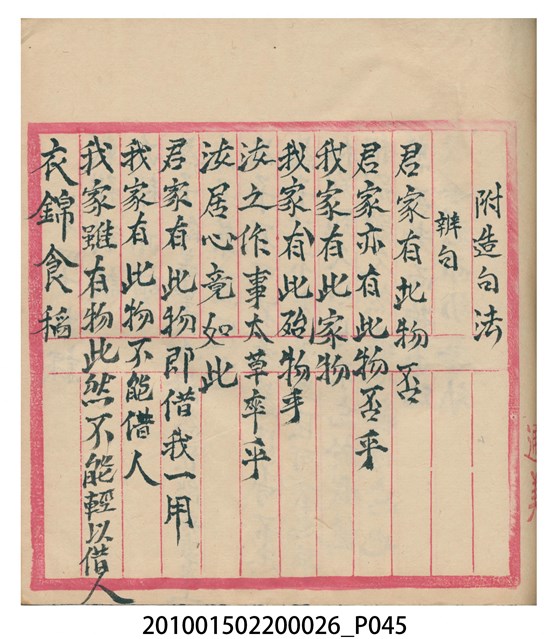 附造句法
辨句
君家有此物否
君家亦有此物否乎
我家有此家物
我家有此殆物乎
汝之作事太草率乎
汝居心竟如此
君家有此物即借我一用
我家有此物不能借人
我家雖有物此然不能輕以借人
衣錦食稻
201001502200026_P045